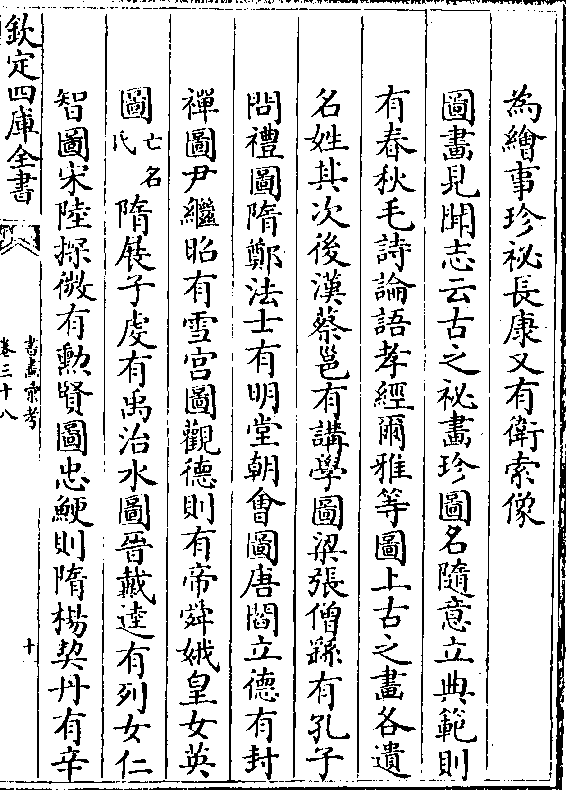 為繪事珍祕長康又有衛索像
圖畫見聞志云古之祕畫珍圖名隨意立典範則
有春秋毛詩論語孝經爾雅等圖上古之畫各遺
名姓其次後漢蔡邕有講學圖梁張僧繇有孔子
問禮圖隋鄭法士有明堂朝㑹圖唐閻立德有封
禪圖尹繼昭有雪宫圖觀德則有帝舜娥皇女英
圖亡名氏隋展子䖍有禹治水圖晉戴逵有列女仁
智圖宋陸探微有勳賢圖忠鯁則隋楊契丹有辛
欽定四庫全書
書畵彚考
卷三十八
十